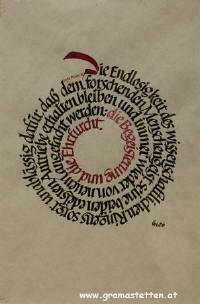 Die Endlosigkeit des wissenschaftlichen Ringens sorgt unablässig dafür, daß dem forschenden Menschengeist seine beiden edelsten Antriebe erhalten bleiben und immer wieder von neuem angefacht werden: die Begeisterung und die Ehrfurcht.
www.gramastetten.at